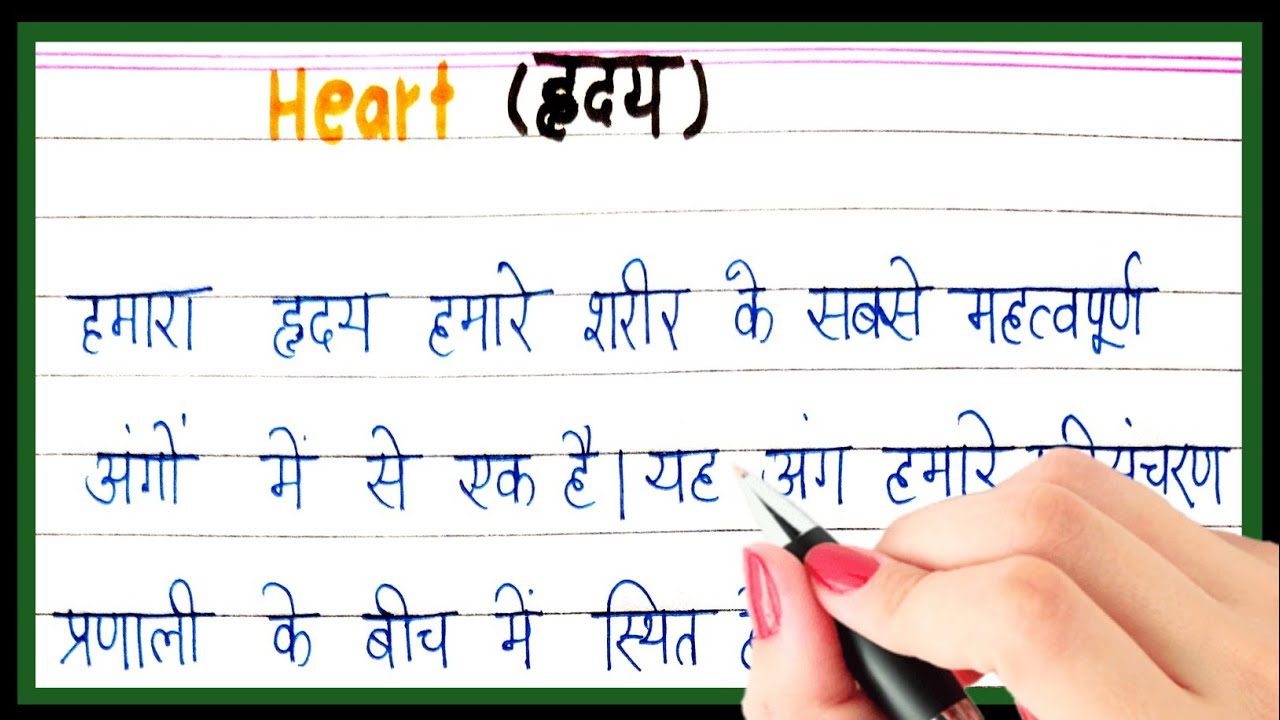 Heart (हृदय)
हमारा हृदय हमारे शरीर के सबसे महत्वपूर्ण
अंगों में से एक है। यह अंग हमारे
प्रणाली के बीच में स्थित